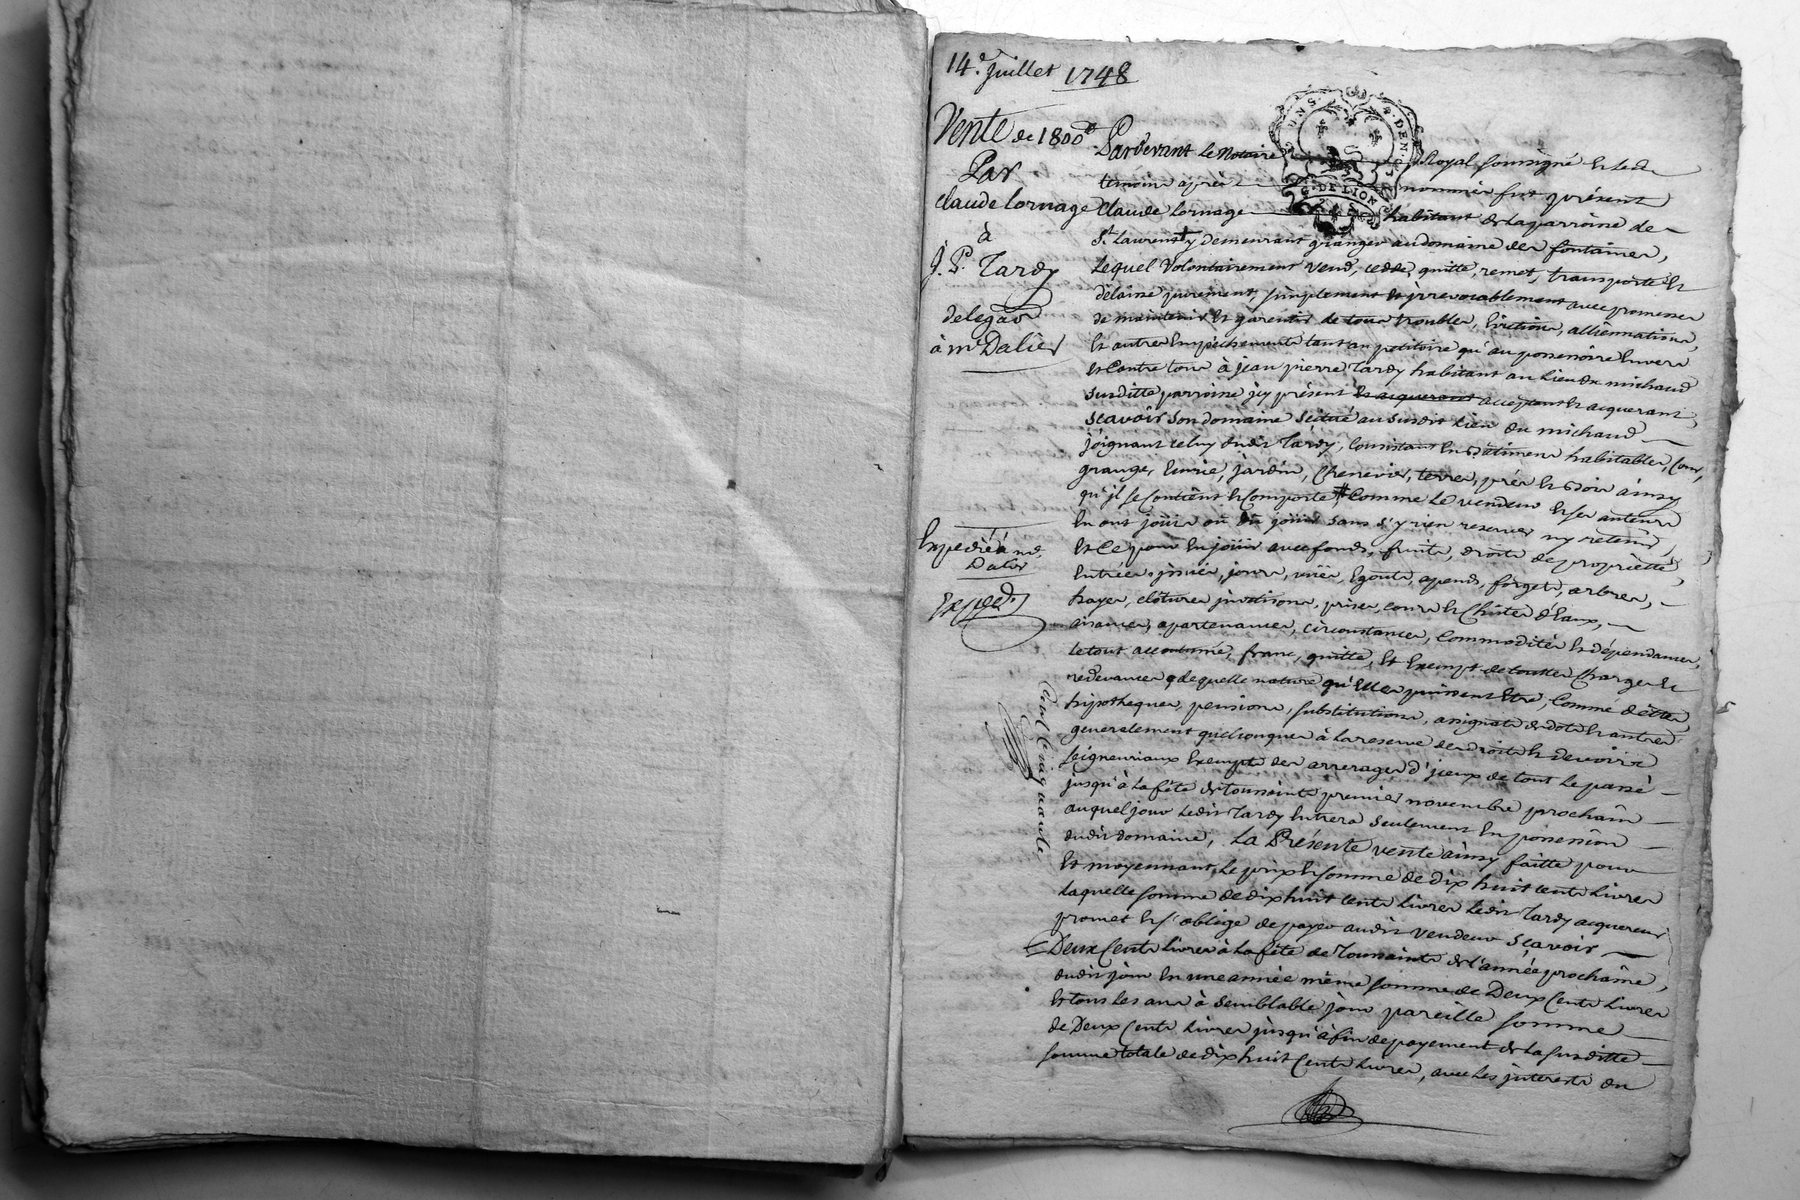 14e. Juillet 1748
Vente de 1800lt
Par
Claude Cornage
à
J. P. Tardy
delegaon
à me Dalier
Expedié à me.
Dalier
Exped.
Cent Cinquante
G. DE LION
Pardevant Le Notaire Royal soussigné et les
temoins après nommés fut présent
Claude Cornage habitant de la parroisse de
St. Laurens y demeurant granger au domaine des fontaines,
Lequel volontairement vend, cedde, quitte, remet, transporte et
délaisse purement, simplement et irrevocablement avec promesse
de maintenir et garentir de tous troubles, Evictions, alliennations,
Et autres Empéchements tant au petitoire qu'au possessoire Envers
et Contre tous à jean pierre Tardy habitant au Lieu de michaud
susditte parroisse jcy présent et acquerant acceptant et acquerant,
scavoir son domaine scitué au susdit Lieu de michaud
joignant celuy dudit Tardy, Consistant En bâtimens habitables, Cour,
grange, Ecurie, jardin, Chenevier, terres, prés et bois ainsy
qu'jl se Contient et Comporte, # Comme Le vendeur et ses auteurs
En ont joüis ou dû joüir sans s'y rien reserver ny retenir,
Et Ce pour En joüir avec fonds, fruits, droits de proprieté,
Entrées, jssües, jours, vües, Egouts, apends, forgets, arbres,
hayes, clôtures jnvetisons, prises, cours et Chûtes d'Eaux,
aisances, apartenances, circonstances, Commodités et dépendances,
le tout accoutumé, franc, quitte, et Exempt de touttes Charges et
redevances de quelle nature qu'Elles puissent Etre, Comme dettes,
hipotheques, pensions, substitutions, assignats de dots et autres
generalement quelconques à La reserve des droits et devoirs
seigneuriaux Exempts des arrerages d'jceux de tout Le passé
jusqu'à La fête de toussaints premier novembre prochain
auquel jour Ledit Tardy Entrera seulement En possession
dudit domaine; La Présente vente ainsy faitte pour
Et moyennant Le prix et somme de dix huit cents Livres
Laquelle somme de dix huit cents Livres Ledit Tardy acquereur
promet et s'oblige de payer audit vendeur scavoir
Deux Cents Livres à La fête de Toussaints de l'année prochaine,
dudit jour En une année même somme de Deux Cents Livres
Et tous Les ans à semblable jour pareille somme
de Deux Cents Livres jusqu'à fin de payement de La susditte
somme totale de dix huit Cents Livres, avec Les jnterests du